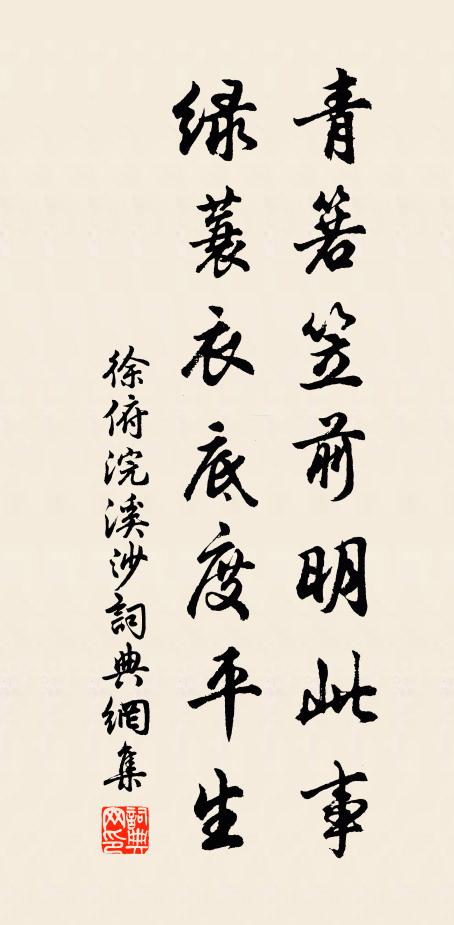 青箬笠前明此事
绿蓑衣底度平生
徐俯浣溪沙詞典網集
詞典網印